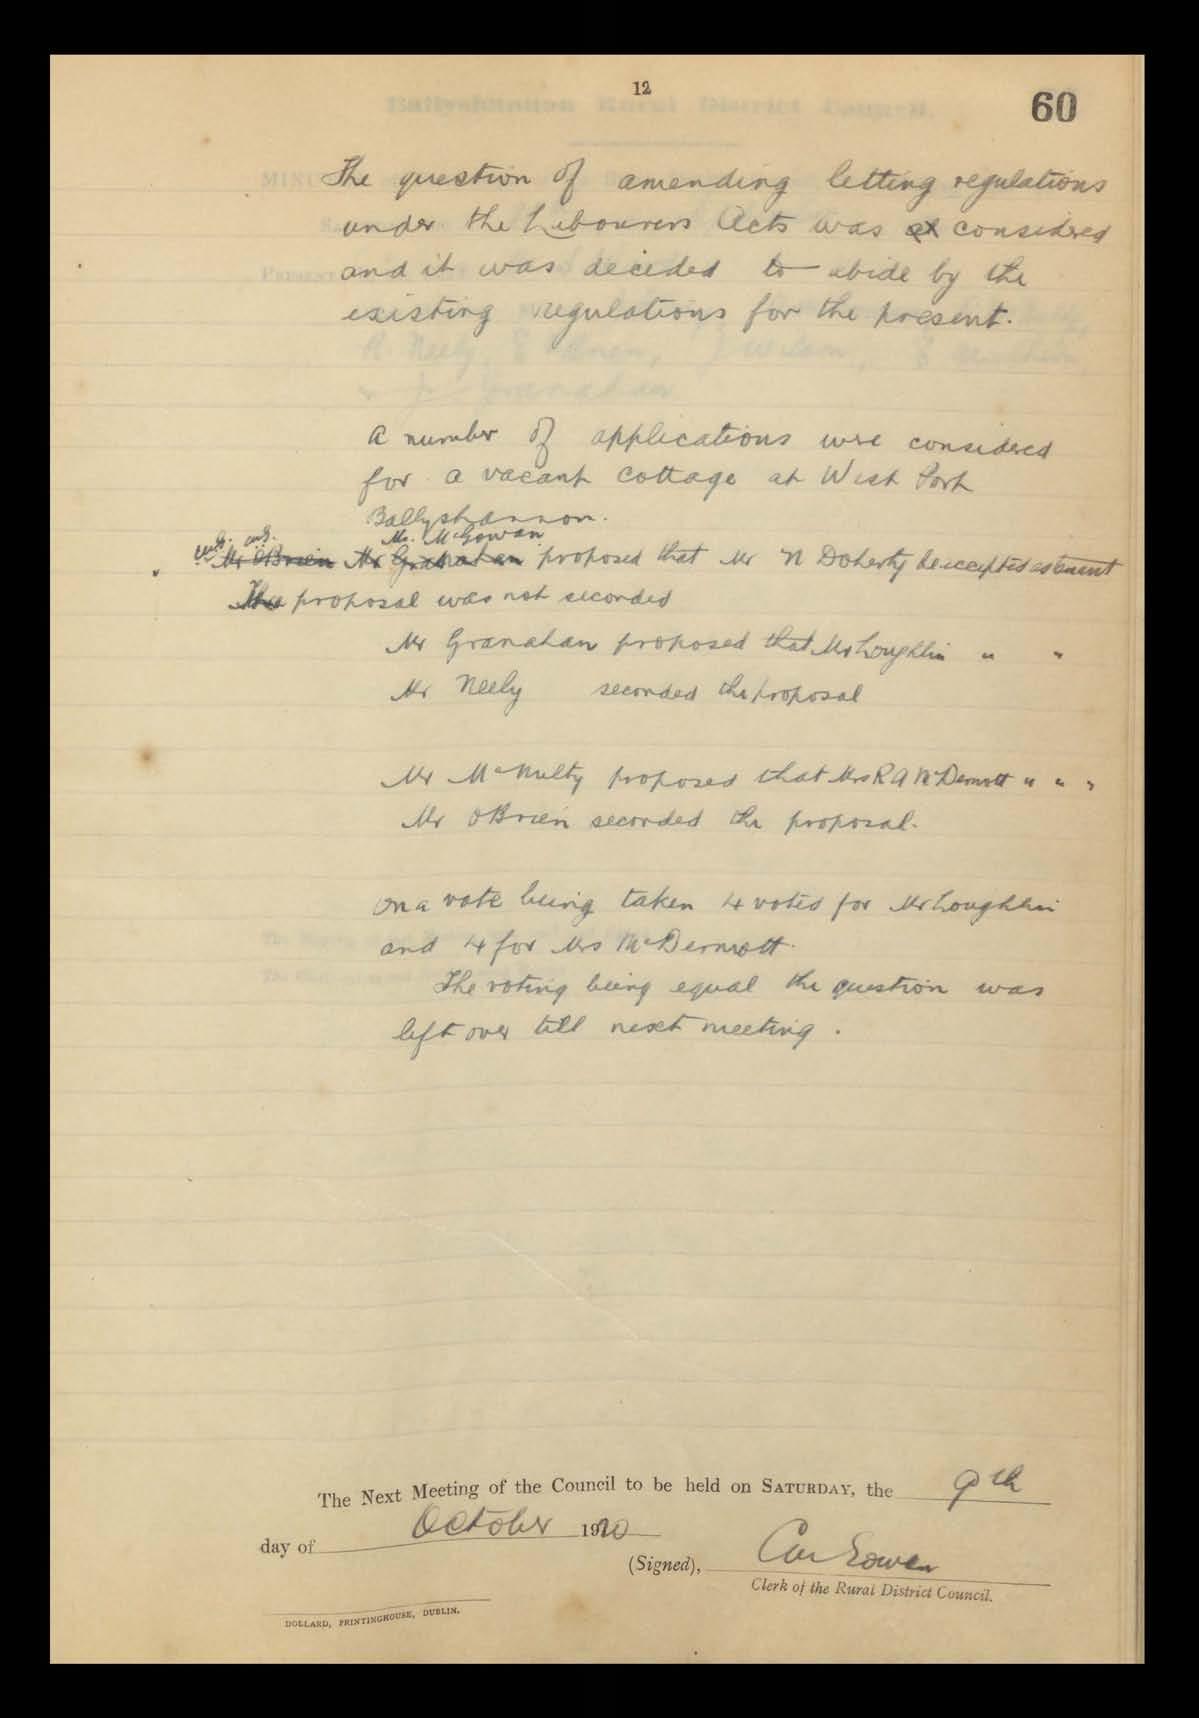 12
60
The question of amending letting regulations
under the Labourers Acts was considered
and it was decided to abide by the
existing regulations for the present.
A number of applications were considered
for a vacant cottage at West Port
Ballyshannon.
Mr. McGowan
Mr OBrien Mr Granahan proposed that Mr N Doherty be accepted as tenant
The proposal was not seconded
Mr Granahan proposed that Mr Loughlin " "
Mr Neely seconded the proposal
Mr McNulty proposed that Mrs R A McDermott " " "
Mr OBrien seconded the proposal.
On a vote being taken 4 votes for Mr Loughlin
and 4 for Mrs McDermott.
The voting being equal the question was
left over till next meeting.
The Next Meeting of the Council to be held on SATURDAY, the 9th
day of October 1920
(Signed),
Clerk of the Rural District Council.
DOLLARD, PRINTINGHOUSE, DUBLIN.